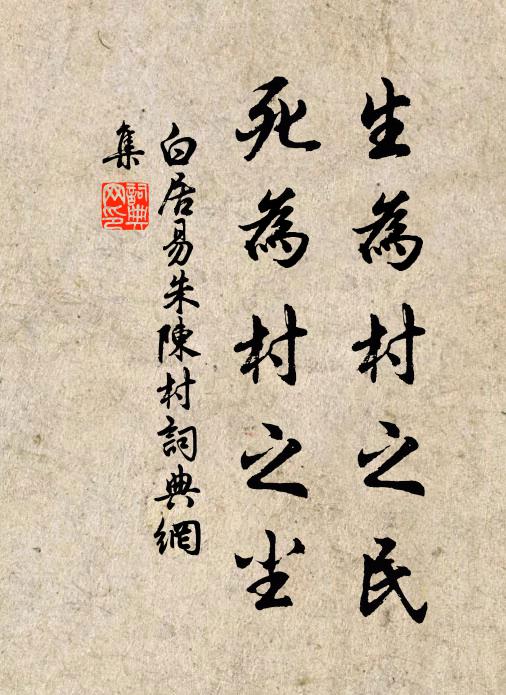 生為村之民
死為村之尘
白居易朱陳村詞典網
集
詞典網印